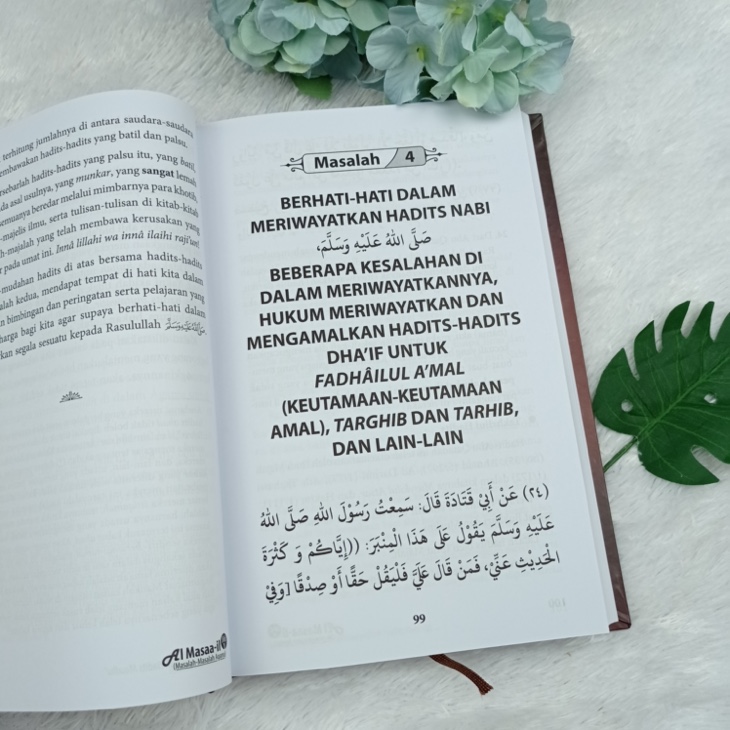 terhitung jumlahnya di antara saudara-saudara
membawakan hadits-hadits yang batil dan palsu.
tersebarlah hadits-hadits yang palsu itu, yang batil,
ada asal usulnya, yang munkar, yang sangat lemah
semuanya beredar melalui mimbarnya para khotib,
-majelis ilmu, serta tulisan-tulisan di kitab-kitab
h-majalah yang telah membawa kerusakan yang
r pada umat ini. Innâ lillahi wa innâ ilaihi raji'un!
-mudahan hadits di atas bersama hadits-hadits
alah kedua, mendapat tempat di hati kita dalam
n bimbingan dan peringatan serta pelajaran yang
harga bagi kita agar supaya berhati-hati dalam
kan segala sesuatu kepada Rasulullah ﷺ.
Al Masaa-il
(Masalah-Masalah
Masalah 4
BERHATI-HATI DALAM
MERIWAYATKAN HADITS NABI
صَلَّى اللهُ عَلَيْهِ وَسَلَّمَ،
BEBERAPA KESALAHAN DI
DALAM MERIWAYATKANNYA,
HUKUM MERIWAYATKAN DAN
MENGAMALKAN HADITS-HADITS
DHA'IF UNTUK
FADHÂILUL A'MAL
(KEUTAMAAN-KEUTAMAAN
AMAL), TARGHIB DAN TARHIB,
DAN LAIN-LAIN
(٢٤) عَنْ أَبِيْ قَتَادَةَ قَالَ: سَمِعْتُ رَسُوْلَ اللهِ صَلَّى اللهُ
عَلَيْهِ وَسَلَّمَ يَقُوْلُ عَلَى هَذَا الْمِنْبَرَ: ((إِيَّاكُمْ وَ كَثْرَةَ
الْحَدِيْثِ عَنِّيْ، فَمَنْ قَالَ عَلَيَّ فَلْيَقُلْ حَقًّا أَوْ صِدْقًا [وَفِيْ
99